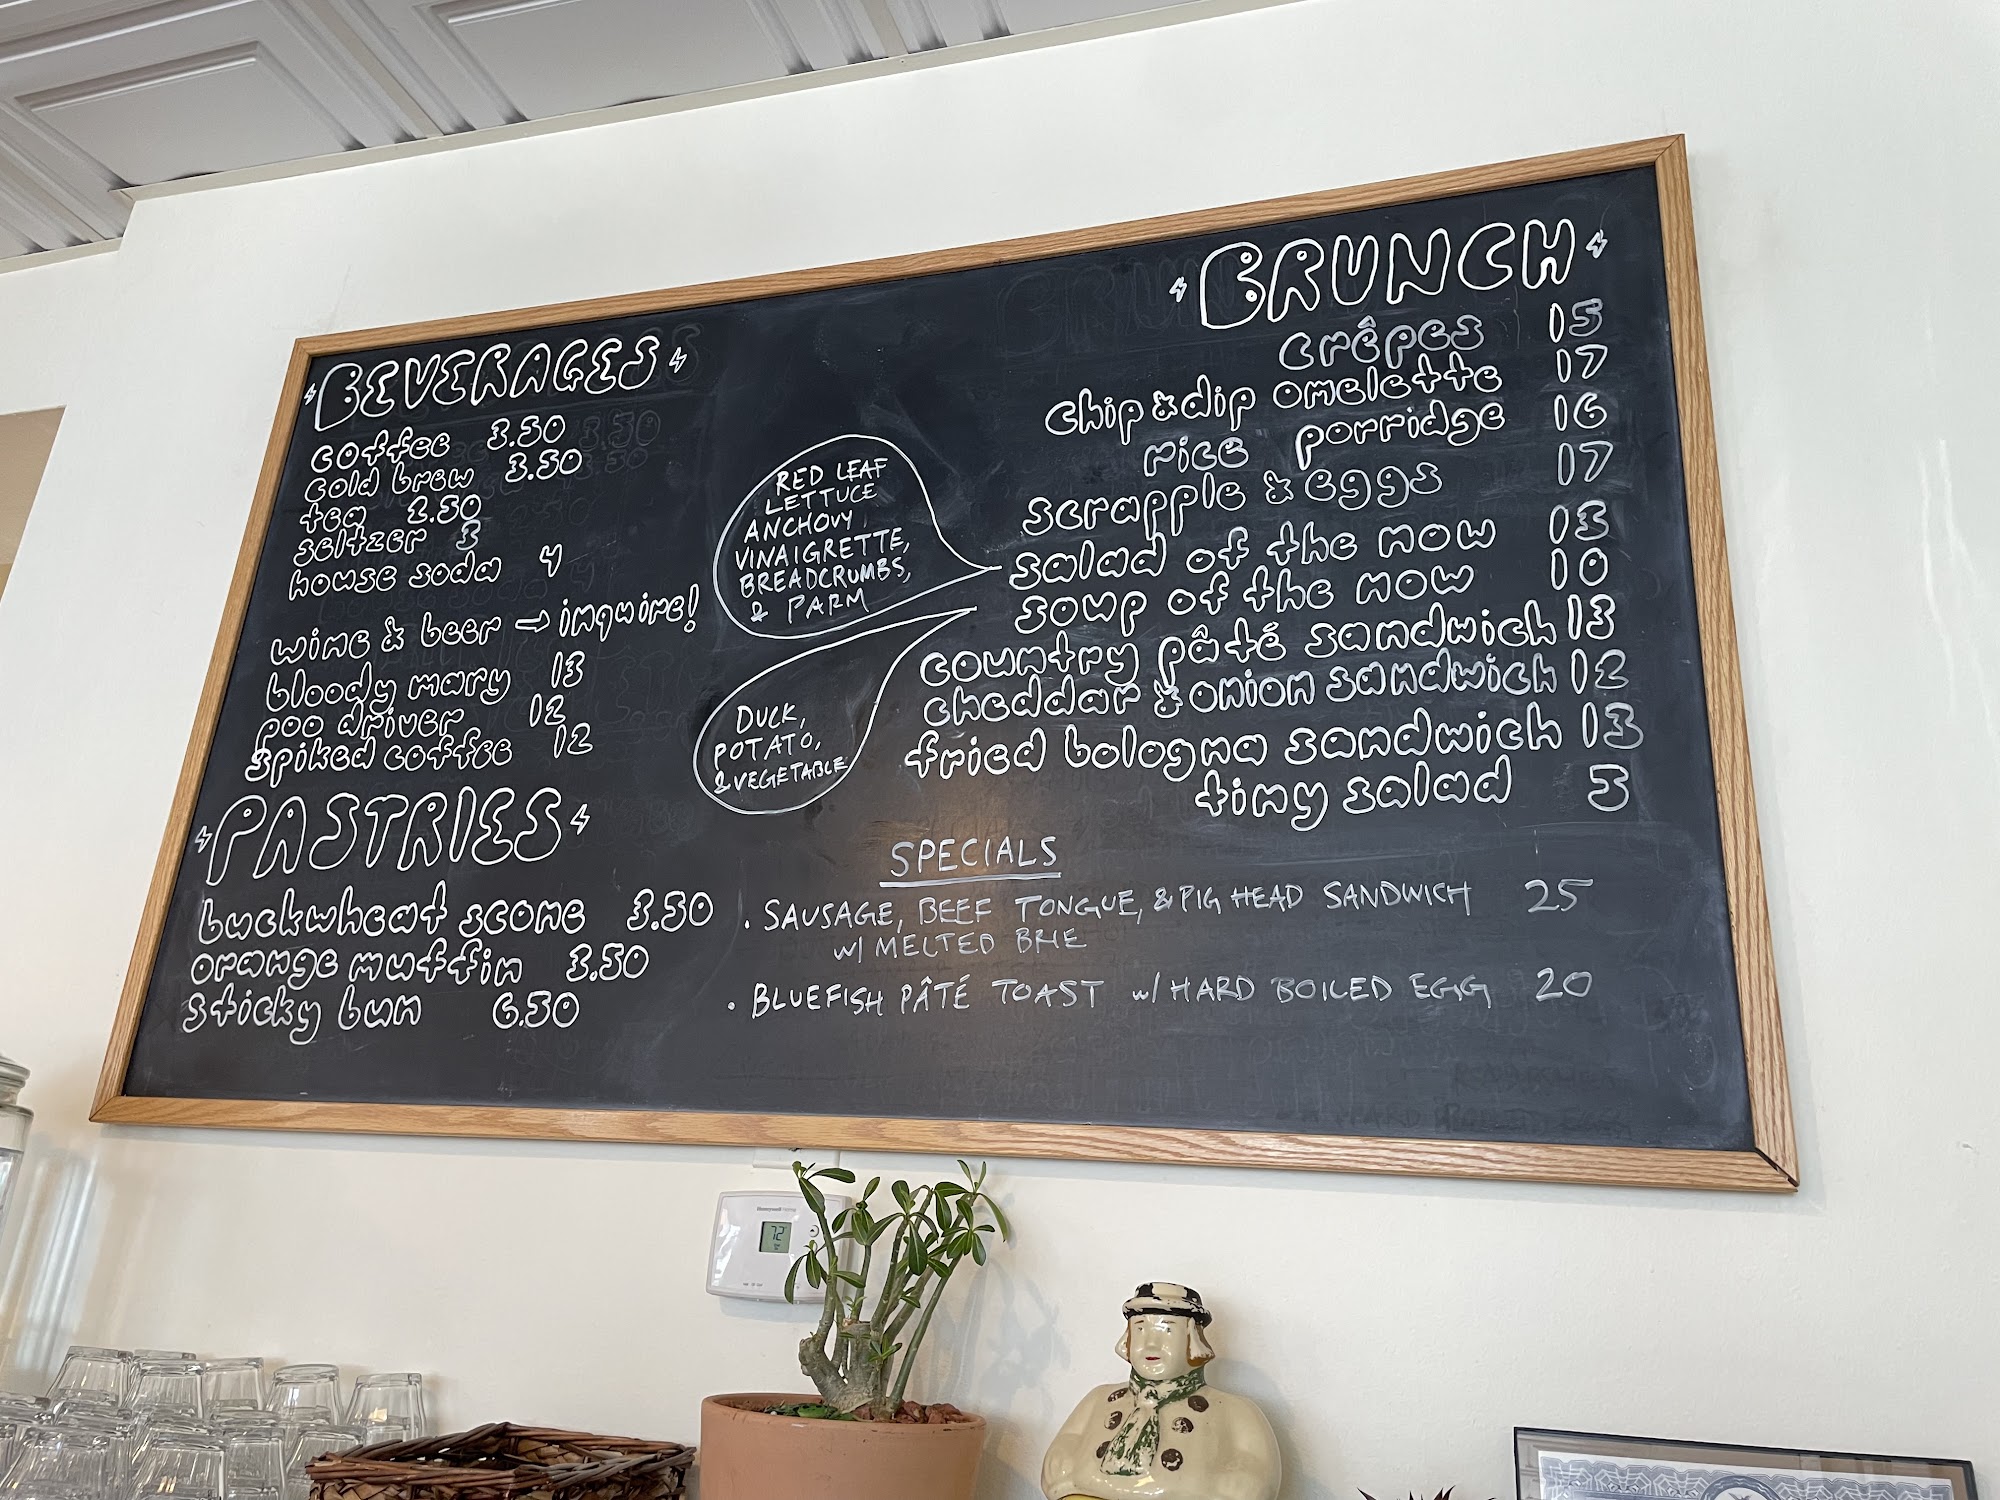 BEVERAGES
coffee 3.50
cold brew 3.50
tea 2.50
seltzer 3
house soda 4
wine & beer → inquire!
bloody mary 13
poo driver 12
spiked coffee 12
PASTRIES
buckwheat scone 3.50
orange muffin 3.50
sticky bun 6.50
RED LEAF
LETTUCE
ANCHOVY
VINAIGRETTE,
BREADCRUMBS,
& PARM
DUCK,
POTATO,
& VEGETABLE
BRUNCH
crêpes 15
chip & dip omelette 17
rice porridge 16
scrapple & eggs 17
salad of the now 13
soup of the now 10
country pâté sandwich 13
cheddar & onion sandwich 12
fried bologna sandwich 13
tiny salad 5
SPECIALS
• SAUSAGE, BEEF TONGUE, & PIG HEAD SANDWICH 25
w/ MELTED BRIE
• BLUEFISH PÂTÉ TOAST w/ HARD BOILED EGG 20
Honeywell
72